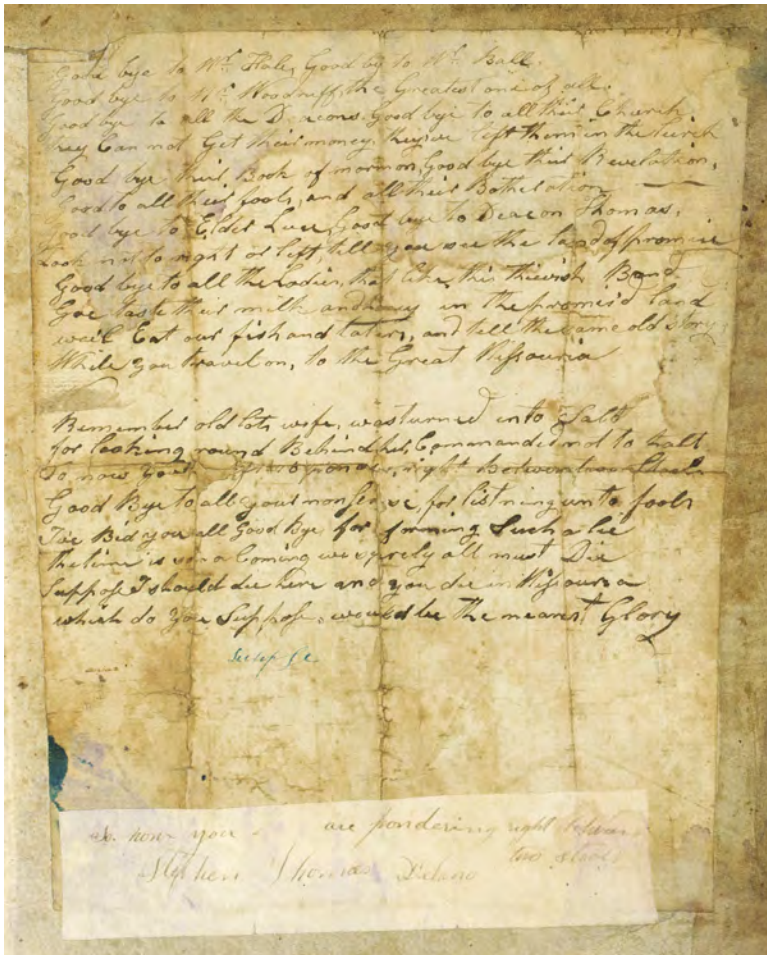 Good bye to Mr. Hale, Good by to Mr. Ball.
Good bye to Mr. Woodruff, the Greatest one of all.
Good bye to all the Deacons. Good bye to all their Church.
They Can not Get their money. they've left them in the lurch
Good bye their Book of mormon, Good bye their Revelation,
Good to all their fools, and all their Botheration
Good bye to Elder Luce, Good bye to Deacon Thomas,
Look not to right or left, till you see the land of promise
Good bye to all the Ladies, that like, this thievish Band.
Goe taste their milk and honey in the promis'd land
we'll Eat our fish and taters, and tell the same old story
While you travel on, to the Great Missouria
Remember old lots wife, was turned into Salt
for looking round Behind her, Commanded not to halt
So now you pondering, right between two Stools
Good Bye to all your money, for listning unto fools
I've Bid you all Good Bye, for forming Such a lie
the time is a Coming we surely all must Die
Suppose I should die here and you die in Missouria
which do you Suppose, would be the nearest Glory
So now you - are pondering right between
two stools
Stephen Thomas Delano